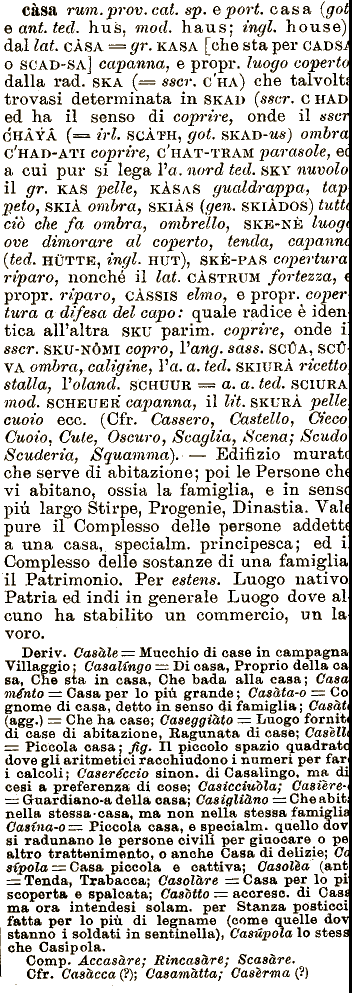 càsa rum. prov. cat. sp. e port. casa (got
e ant. ted. hus, mod. haus; ingl. house)
dal lat. CÀSA = gr. KASA [che sta per CADSA
o SCAD-SA] capanna, e propr. luogo coperto
dalla rad. SKA (= sscr. C'HA) che talvolta
trovasi determinata in SKAD (sscr. CHAD
ed ha il senso di coprire, onde il sscr
ĆHÂYÂ (= irl. SCÀTH, got. SKAD-us) ombra
C'HAD-ATI coprire, C'HAT-TRAM parasole, ed
a cui pur si lega l'a. nord ted. SKY nuvolo
il gr. KAS pelle, KÀSAS gualdrappa, tap
peto, SKIÀ ombra, SKIÀS (gen. SKIÀDOS) tutto
ciò che fa ombra, ombrello, SKE-NÈ luogo
ove dimorare al coperto, tenda, capanna
(ted. HÜTTE, ingl. HUT), SKÈ-PAS copertura
riparo, nonché il lat. CÀSTRUM fortezza, e
propr. riparo, CÀSSIS elmo, e propr. coper
tura a difesa del capo: quale radice è iden-
tica all'altra SKU parim. coprire, onde il
sscr. SKU-NÔMI copro, l'ang. sass. SCÛA, SCÛ-
VA ombra, caligine, l'a. a. ted. SKIURÂ ricetto
stalla, l'oland. SCHUUR = a. a. ted. SCIURA
mod. SCHEUER capanna, il lit. SKURÀ pelle
cuoio ecc. (Cfr. Cassero, Castello, Cieco
Cuoio, Cute, Oscuro, Scaglia, Scena; Scudo
Scuderia, Squamma). — Edifizio murato
che serve di abitazione; poi le Persone che
vi abitano, ossia la famiglia, e in senso
più largo Stirpe, Progenie, Dinastia. Vale
pure il Complesso delle persone addette
a una casa, specialm. principesca; ed il
Complesso delle sostanze di una famiglia
il Patrimonio. Per estens. Luogo nativo
Patria ed indi in generale Luogo dove al-
cuno ha stabilito un commercio, un la-
voro.
Deriv. Casàle = Mucchio di case in campagna
Villaggio; Casalíngo = Di casa, Proprio della ca
sa, Che sta in casa, Che bada alla casa; Casa
ménto = Casa per lo più grande; Casàta-o = Co
gnome di casa, detto in senso di famiglia; Casàt
(agg.) = Che ha case; Caseggiàto = Luogo fornito
di case di abitazione, Ragunata di case; Casèlla
= Piccola casa; fig. Il piccolo spazio quadrato
dove gli aritmetici racchiudono i numeri per far
i calcoli; Caseréccio sinon. di Casalingo, ma di
cesi a preferenza di cose; Casicciuòla; Casière-
= Guardiano-a della casa; Casigliàno = Che abita
nella stessa casa, ma non nella stessa famiglia
Casína-o = Piccola casa, e specialm. quello dov
si radunano le persone civili per giuocare o pe
altro trattenimento, o anche Casa di delizie; Ca
sípola = Casa piccola e cattiva; Casolèa (ant
= Tenda, Trabacca; Casolàre = Casa per lo pi
scoperta e spalcata; Casòtto = accresc. di Casa
ma ora intendesi solam. per Stanza posticci
fatta per lo più di legname (come quelle dov
stanno i soldati in sentinella), Casúpola lo stess
che Casipola.
Comp. Accasàre; Rincasàre; Scasàre.
Cfr. Casàcca (?); Casamàtta; Casèrma (?)